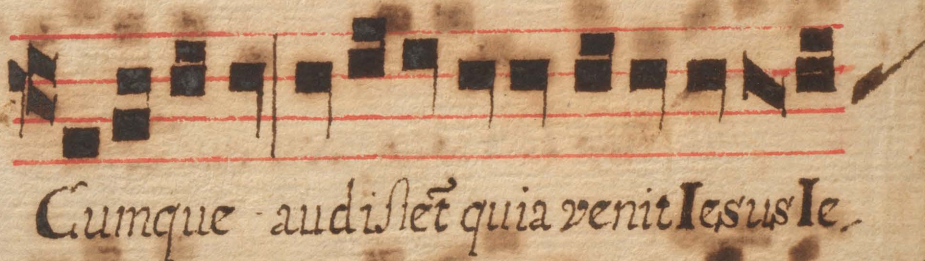 Cumque audiſſet̃ quia venit Iesus Ie.